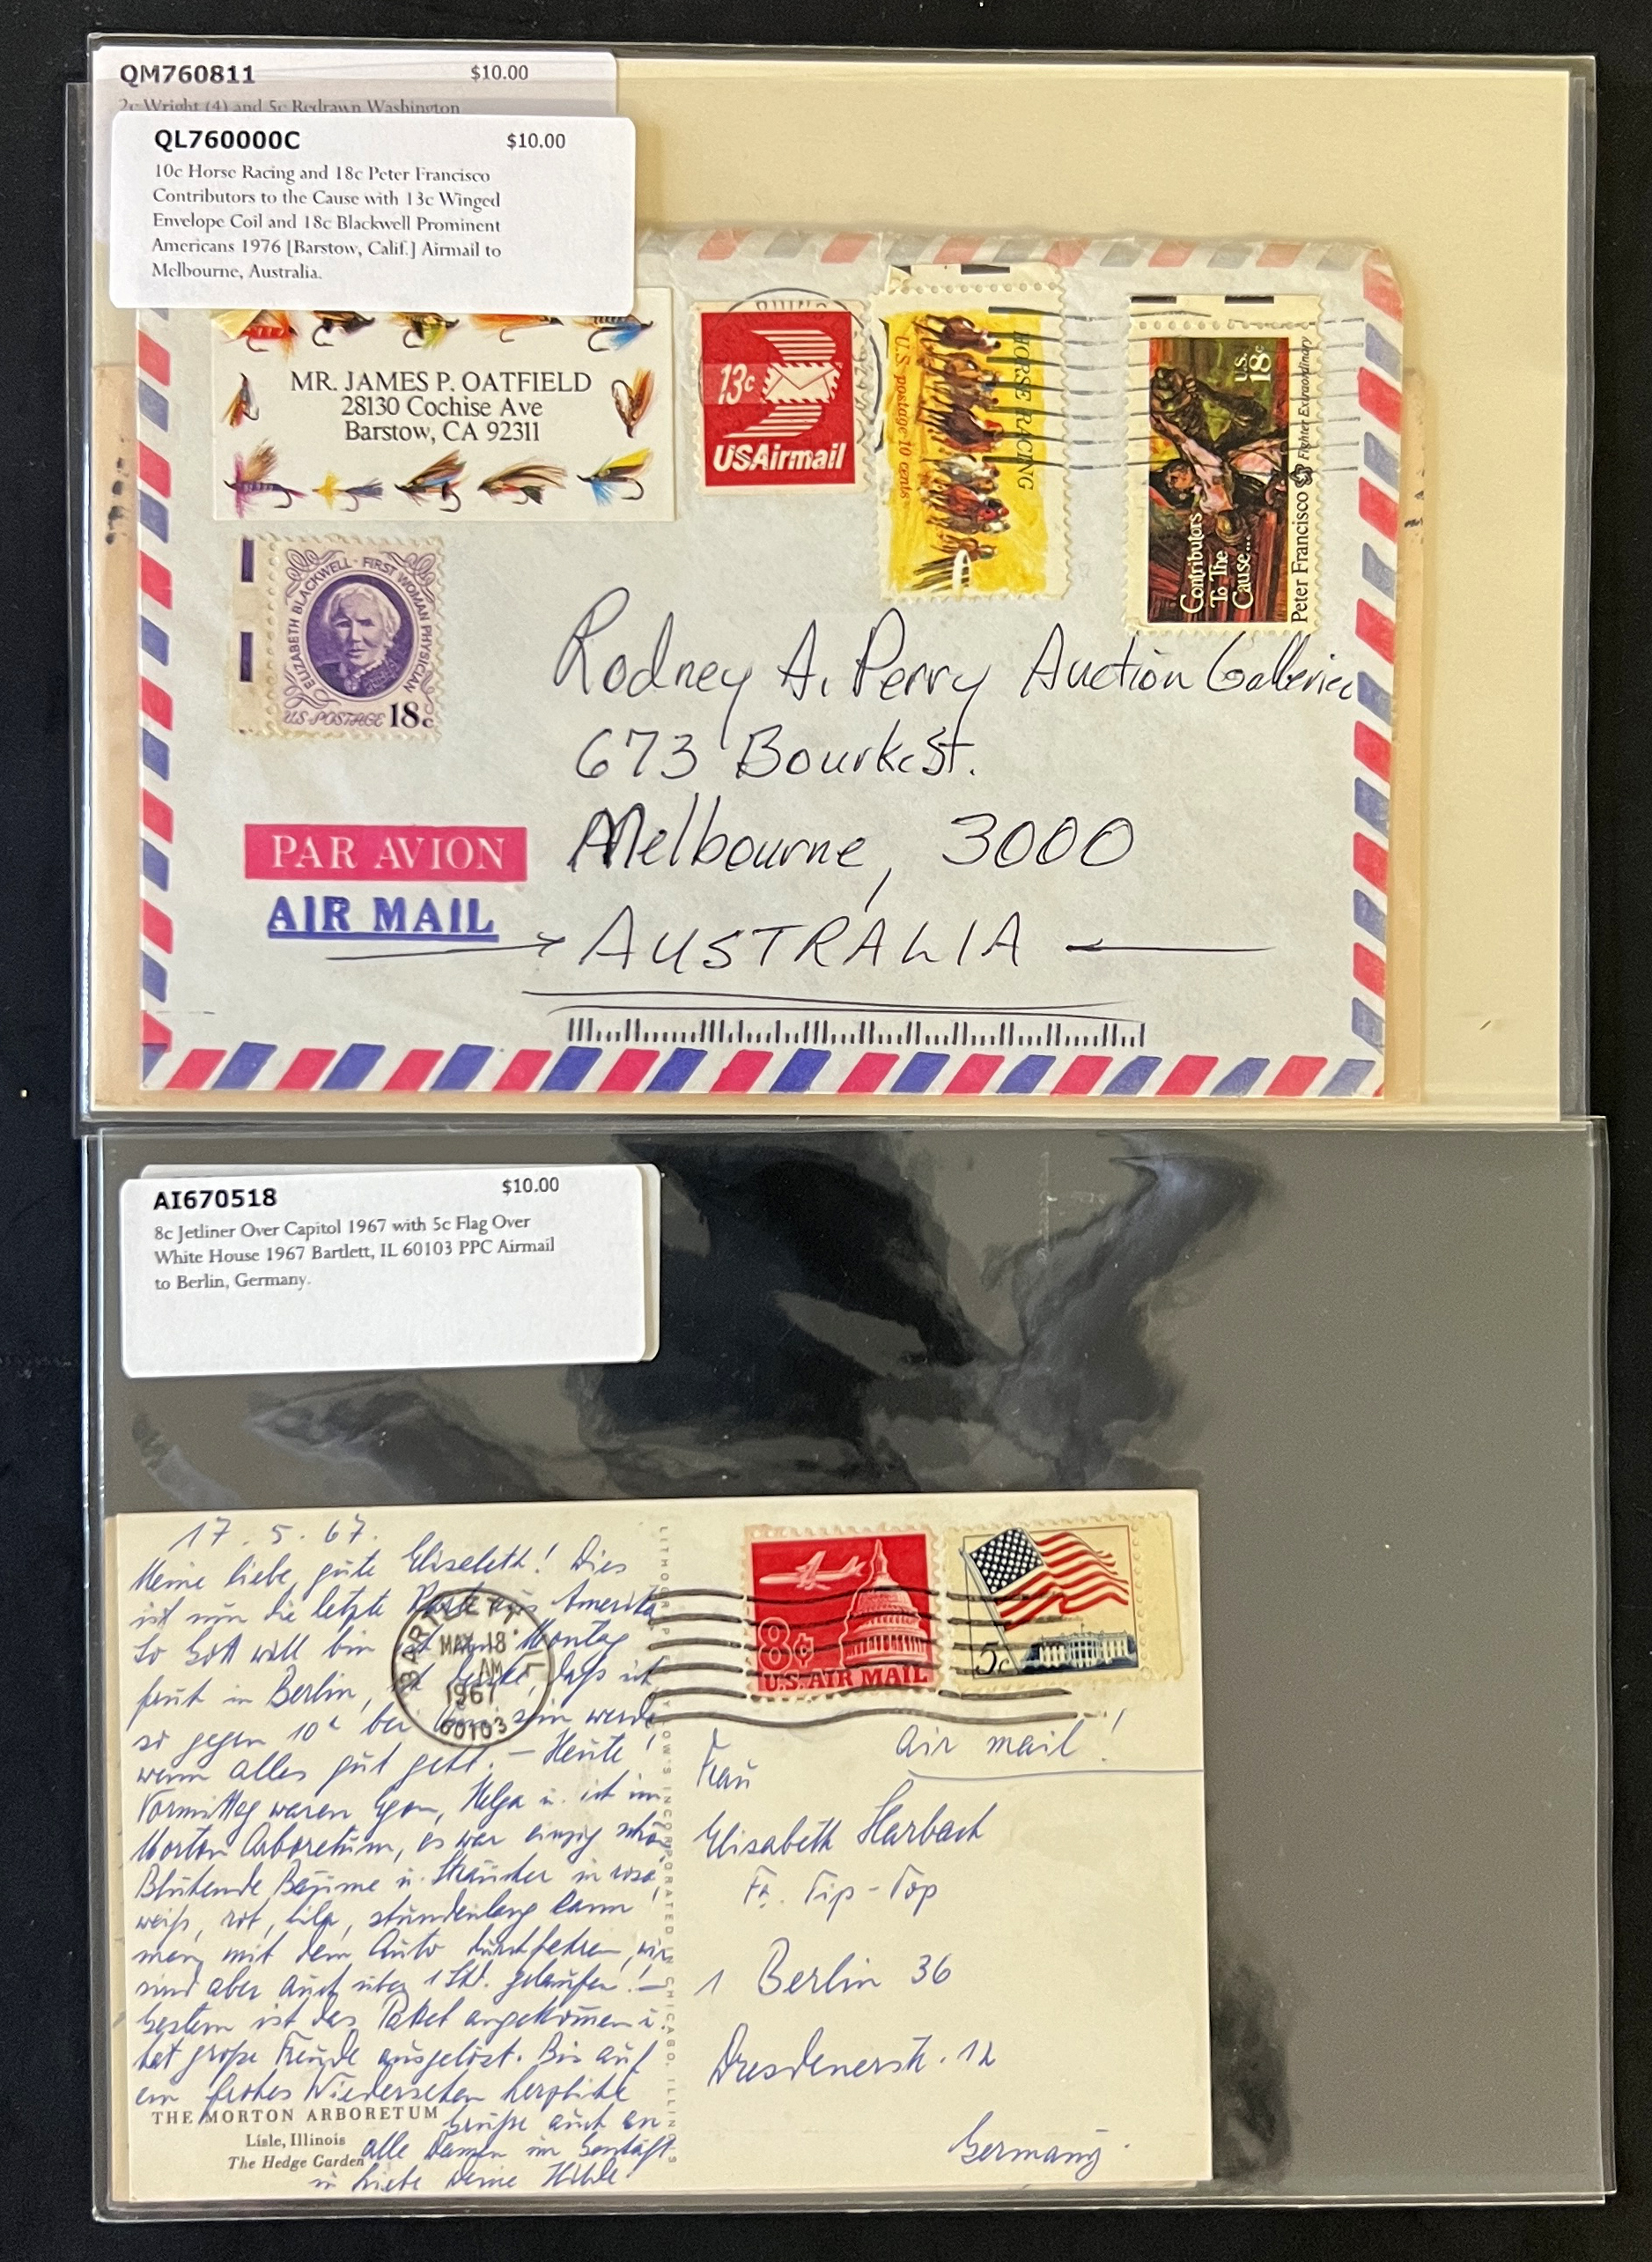 QM760811 $10.00
2c Wright (4) and 5c Redrawn Washington
QL760000C $10.00
10c Horse Racing and 18c Peter Francisco
Contributors to the Cause with 13c Winged
Envelope Coil and 18c Blackwell Prominent
Americans 1976 [Barstow, Calif.] Airmail to
Melbourne, Australia.
MR. JAMES P. OATFIELD
28130 Cochise Ave
Barstow, CA 92311
13c
USAirmail
HORSE RACING
U.S. postage 10 cents
U.S.
18c
Contributors
To The
Cause...
Peter Francisco Fighter Extraordinary
ELIZABETH BLACKWELL · FIRST WOMAN PHYSICIAN
U.S. POSTAGE 18c
Rodney A. Perry Auction Galleries
673 Bourke St.
Melbourne, 3000
AUSTRALIA
PAR AVION
AIR MAIL
AI670518 $10.00
8c Jetliner Over Capitol 1967 with 5c Flag Over
White House 1967 Bartlett, IL 60103 PPC Airmail
to Berlin, Germany.
17. 5. 67.
Meine liebe, gute Elisabeth! Dies
ist nun die letzte Karte aus Amerika
So Gott will bin ich am Montag
früh in Berlin, ich denke, dass ich
so gegen 10h bei Ihnen sein werde
wenn alles gut geht. – Heute
Vormittag waren Egon, Helga u. ich im
Morton Arboretum, es war einzig schön
Blühende Bäume u. Sträucher in rosa,
weiß, rot, lila, stundenlang kann
man mit dem Auto durchfahren, wir
sind aber auch über 1 Std. gelaufen! –
Gestern ist das Paket angekommen u.
hat große Freude ausgelöst. Bis auf
ein frohes Wiedersehen herzliche
Grüße auch an
alle Damen im Geschäft
in Liebe Deine Hilde
THE MORTON ARBORETUM
Lisle, Illinois
The Hedge Garden
BARTLETT, IL
MAY 18
AM
1967
60103
8¢
U.S. AIR MAIL
5c
air mail!
Frau
Elisabeth Harbach
Fa. Tip-Top
1 Berlin 36
Dresdenerstr. 12
Germany